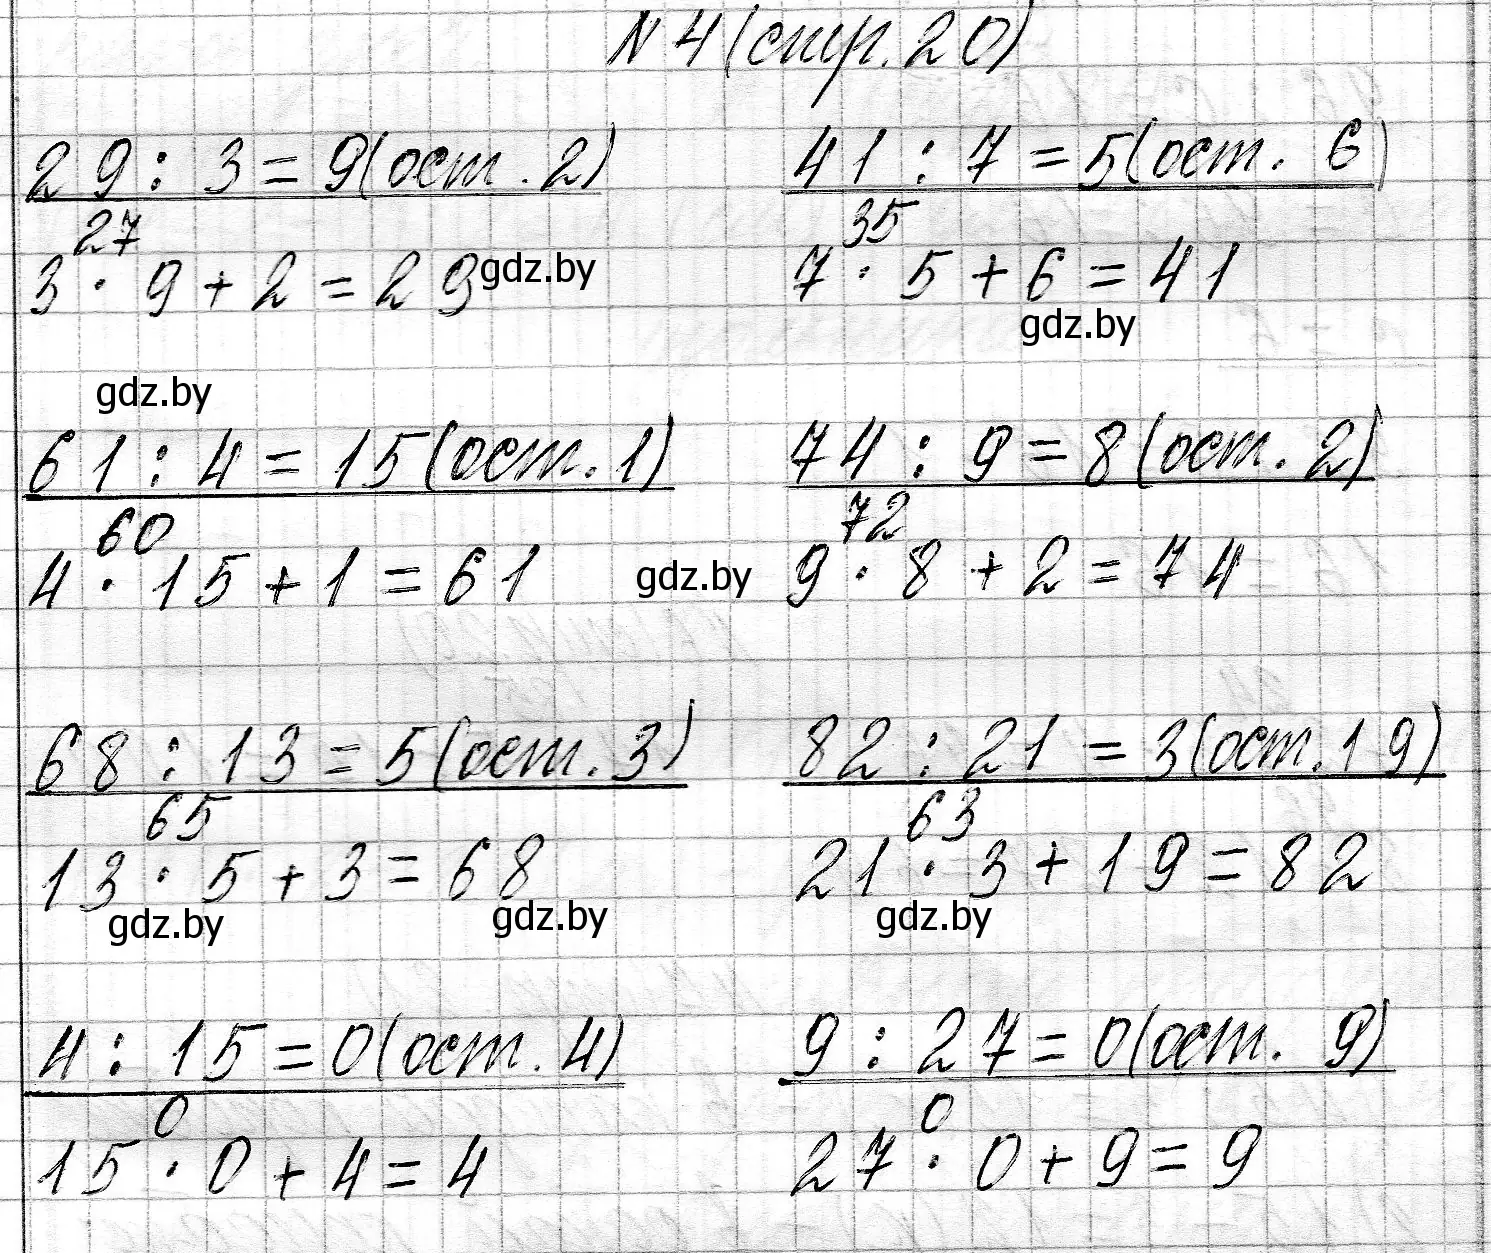 N 4 (стр. 20)
29 : 3 = 9 (ост. 2)
27
3 · 9 + 2 = 29
gdz.by
41 : 7 = 5 (ост. 6)
35
7 · 5 + 6 = 41
gdz.by
gdz.by
61 : 4 = 15 (ост. 1)
60
4 · 15 + 1 = 61
gdz.by
74 : 9 = 8 (ост. 2)
72
9 · 8 + 2 = 74
68 : 13 = 5 (ост. 3)
65
13 · 5 + 3 = 68
gdz.by
gdz.by
82 : 21 = 3 (ост. 19)
63
21 · 3 + 19 = 82
gdz.by
4 : 15 = 0 (ост. 4)
0
15 · 0 + 4 = 4
9 : 27 = 0 (ост. 9)
0
27 · 0 + 9 = 9